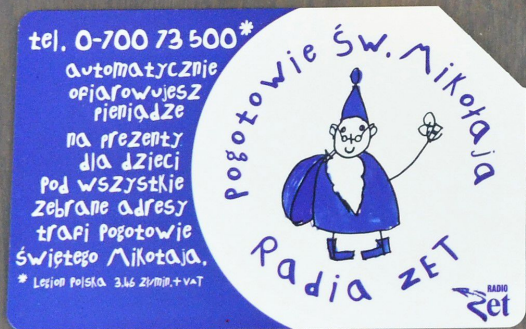 tel. 0-700 73 500*
automatycznie
ofiarowujesz
pieniądze
na prezenty
dla dzieci
pod wszystkie
zebrane adresy
trafi pogotowie
świętego Mikołaja.
* Legion Polska 3.46 zł/min.+VAT
pogotowie Św. Mikołaja
Radia ZET
RADIO
Zet